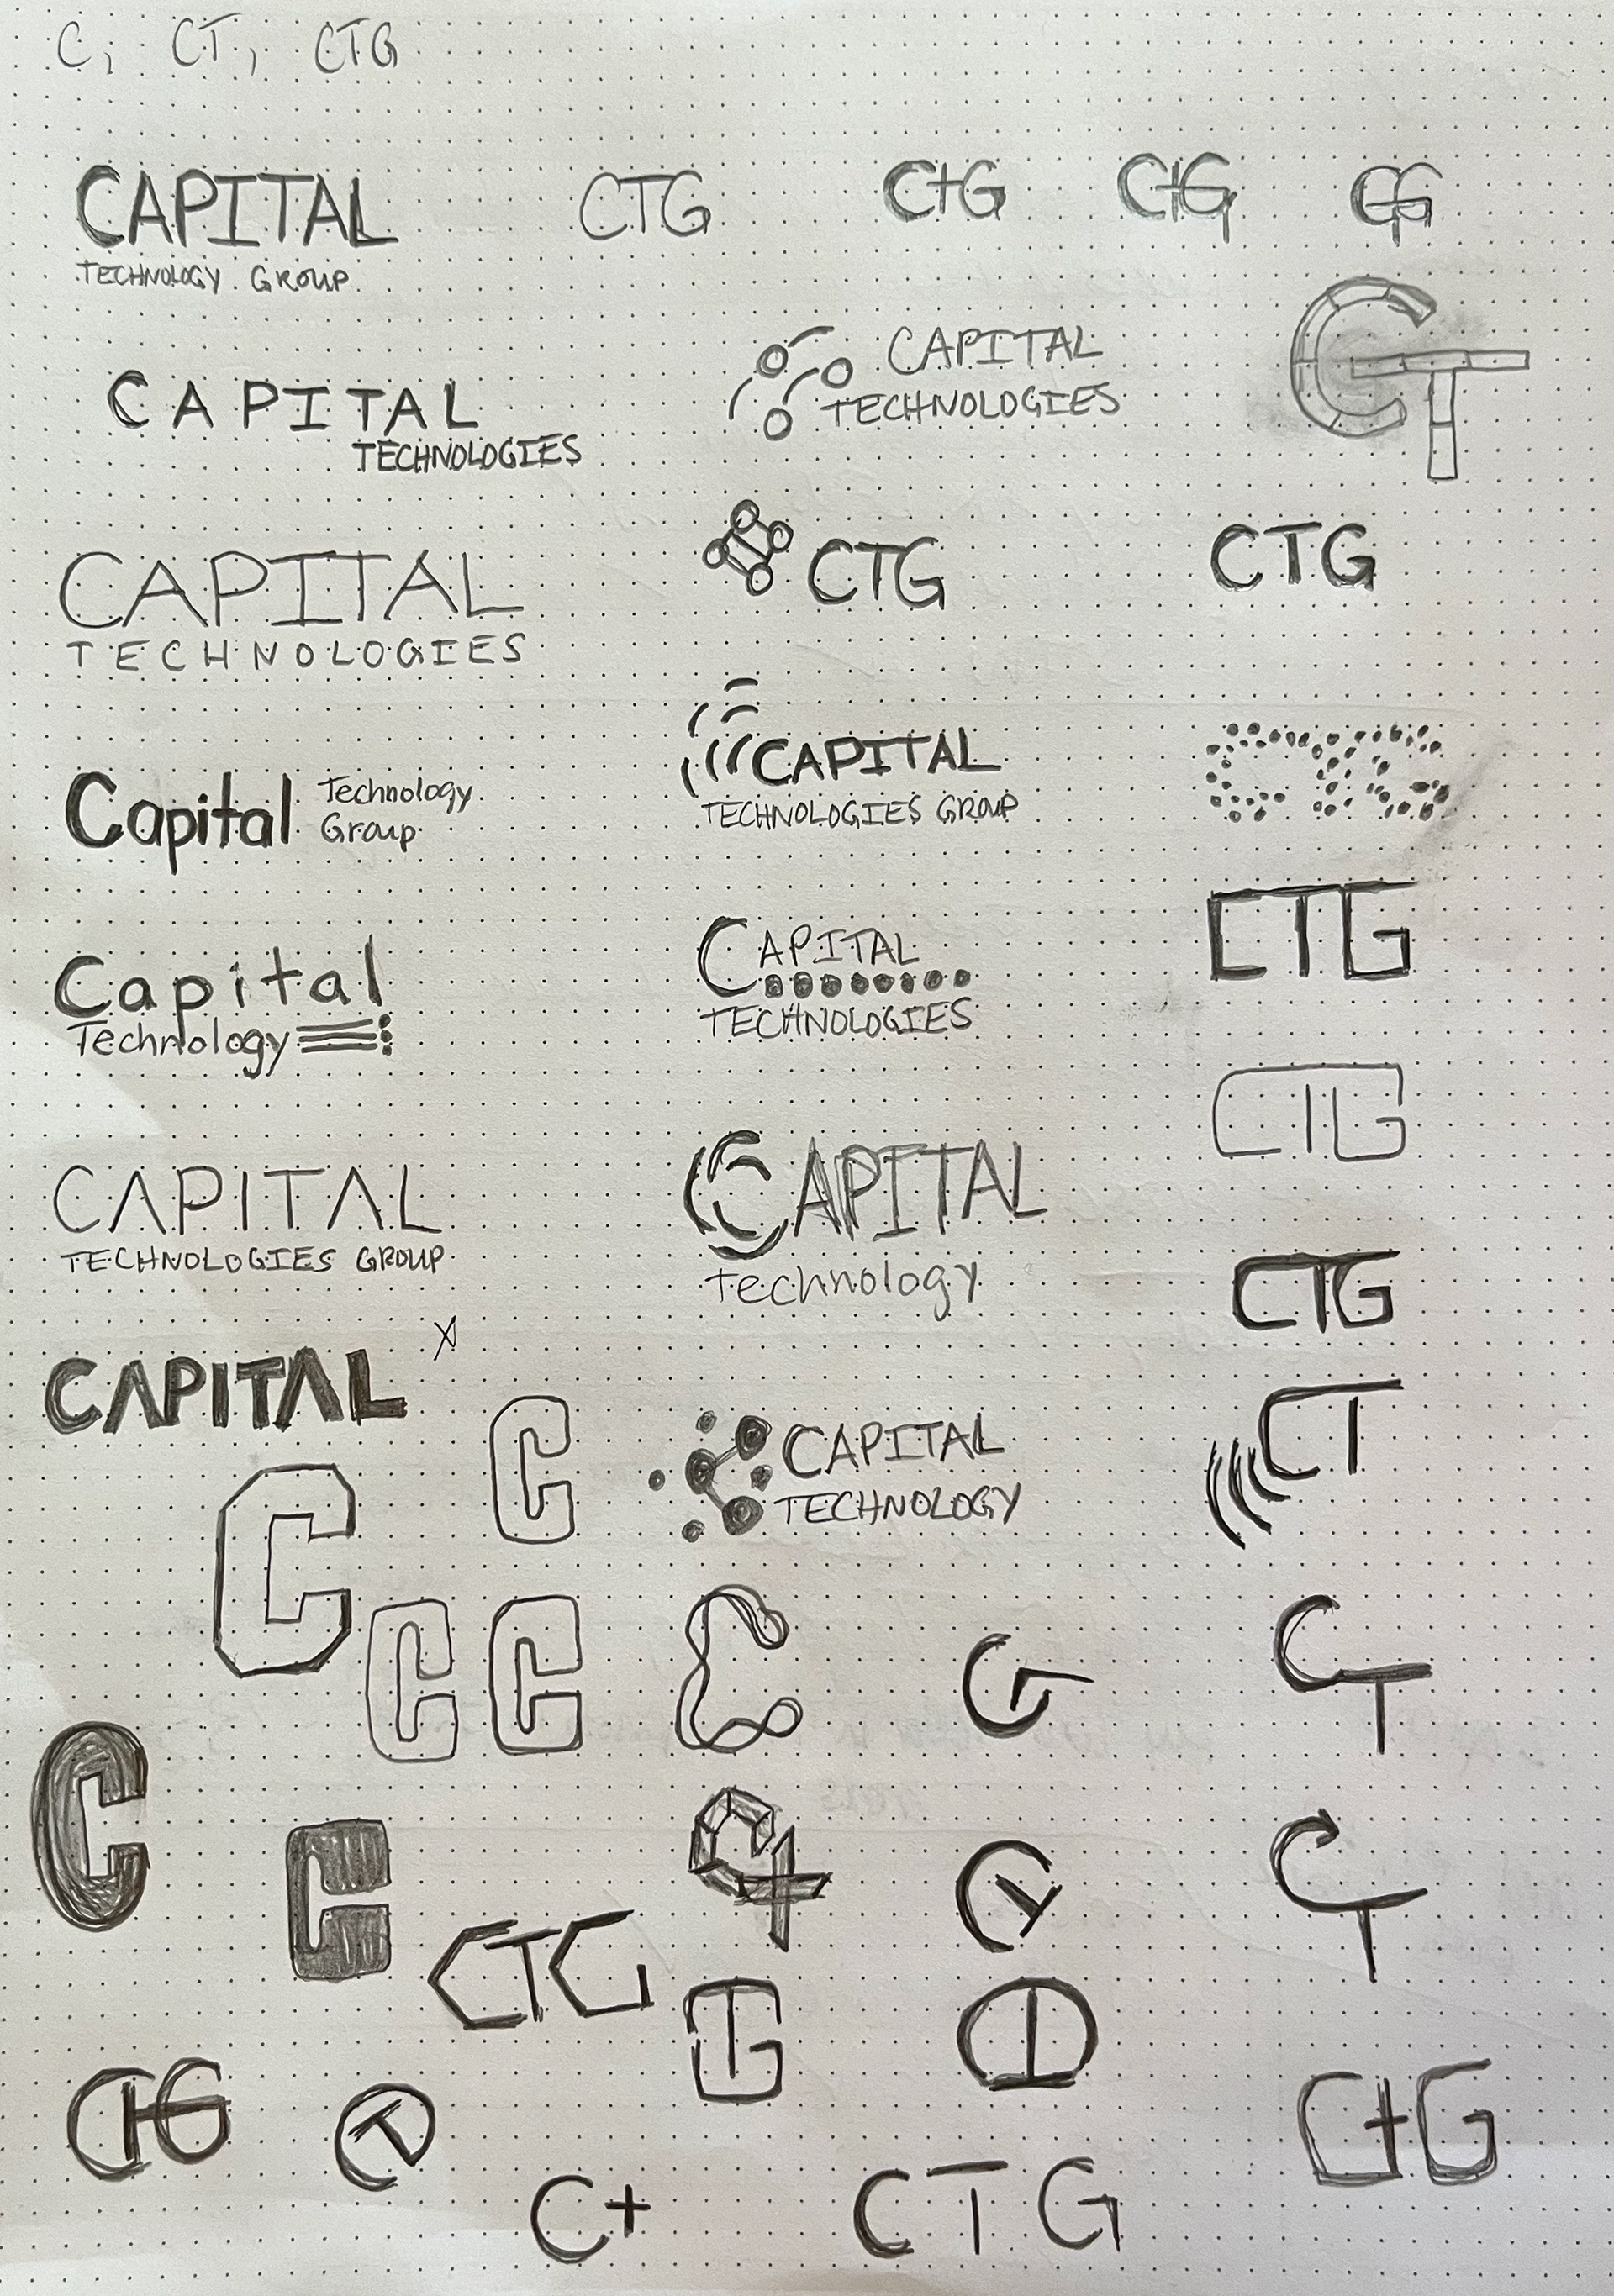 C, CT, CTG
CAPITAL
TECHNOLOGY GROUP
CTG
CtG
CtG
CAPITAL
TECHNOLOGIES
CAPITAL
TECHNOLOGIES
CT
CAPITAL
TECHNOLOGIES
CTG
CTG
Capital Technology
Group
CAPITAL
TECHNOLOGIES GROUP
CTG
Capital
Technology
CAPITAL
TECHNOLOGIES
CTG
CTG
CAPITAL
TECHNOLOGIES GROUP
CAPITAL
technology
CTG
CAPITAL
C
CAPITAL
TECHNOLOGY
CT
C
C
C
C
CT
C
C
CT
CTG
CtG
CT
CtG
C+
CTG